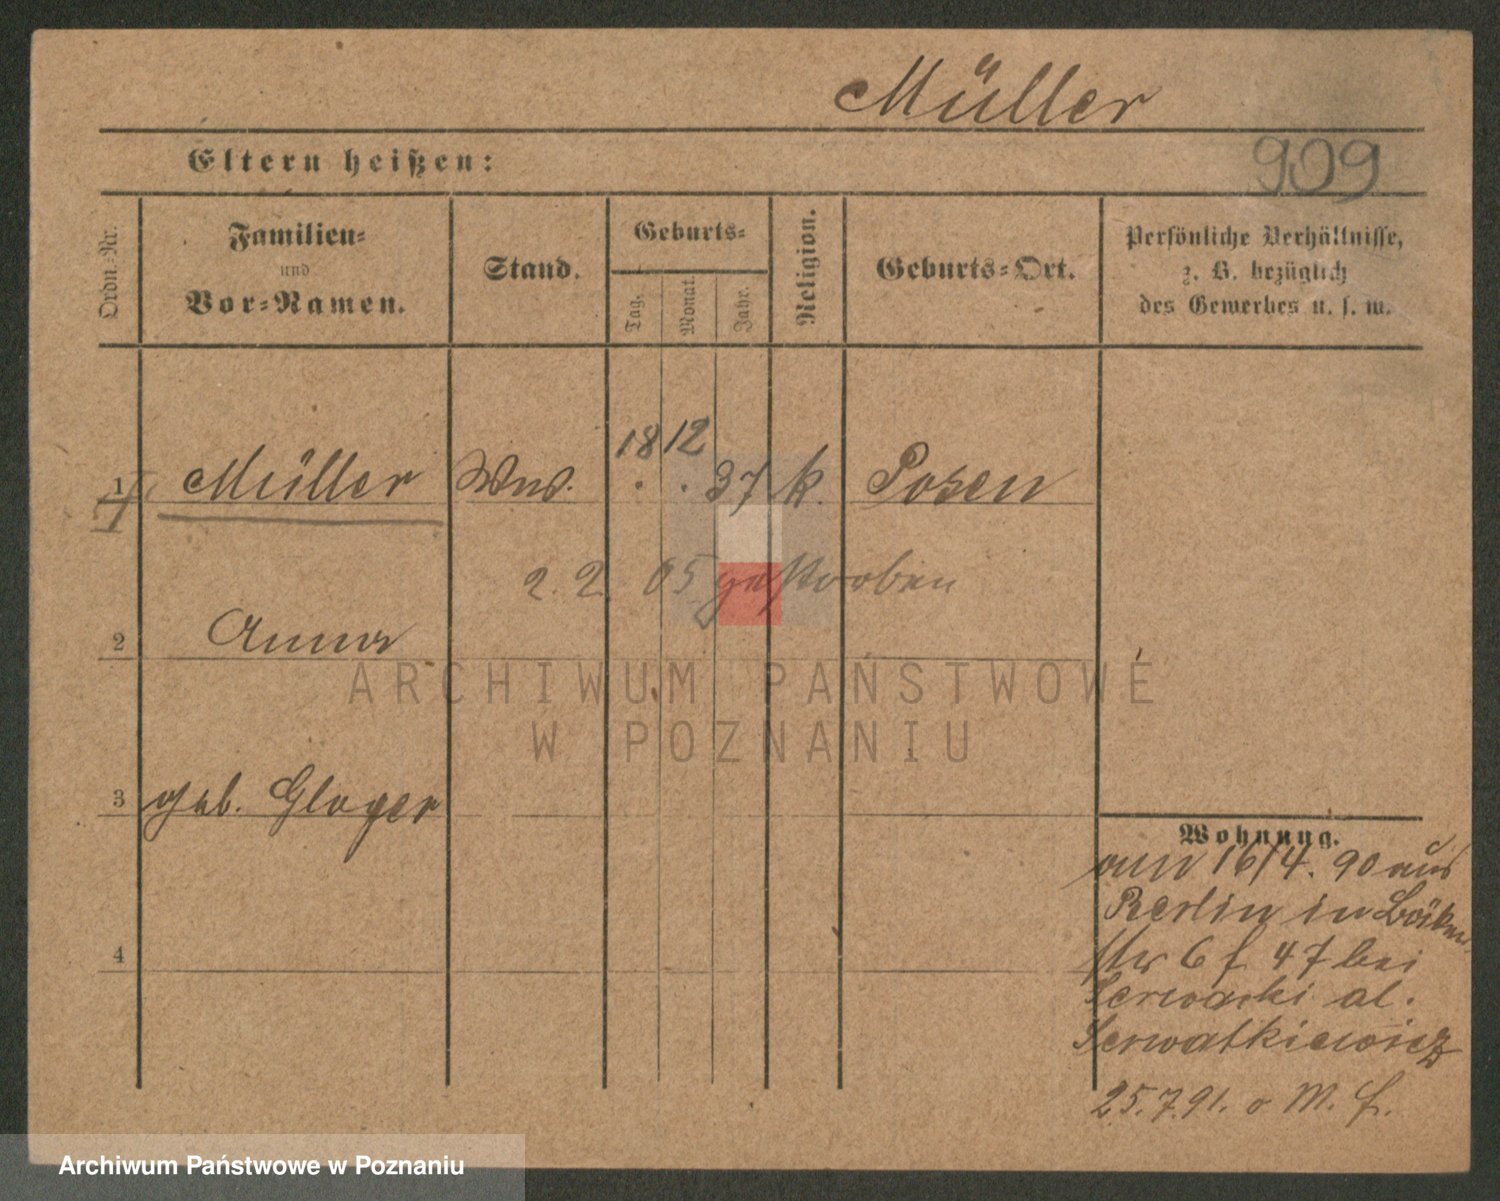 Müller
909
Eltern heißen:
Ordn.-Nr.
Familien-
und
Vor-Namen.
Stand.
Geburts-
Tag.
Monat.
Jahr.
Religion.
Geburts-Ort.
Persönliche Verhältnisse,
z. B. bezüglich
des Gewerbes u. s. w.
18 12
1 Müller Wwe. . . 37 k. Posen
2. 2. 05 gestorben
2 Anna
3 geb. Gloger
4
Wohnung.
am 16/4. 90 aus
Berlin in
str 6 f 47 bei
Serwacki al.
Serwatkiewicz
25.7.91. o M. f.
ARCHIWUM PAŃSTWOWE
W POZNANIU
Archiwum Państwowe w Poznaniu